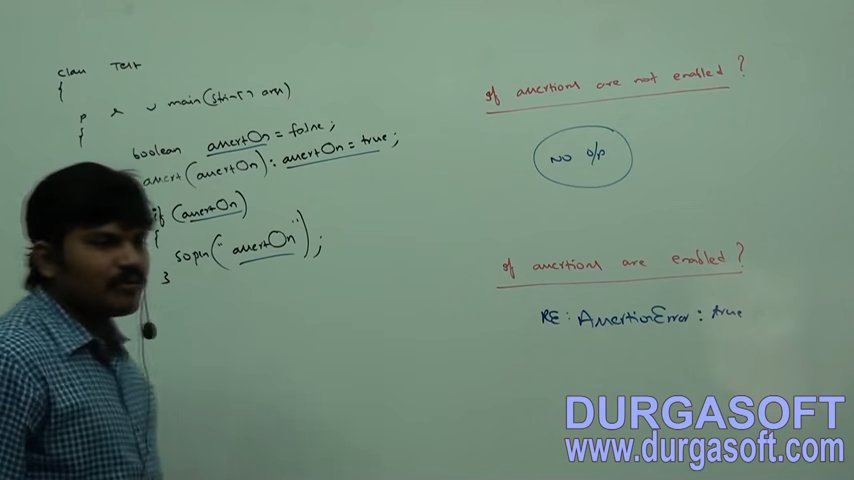 class Test
{
p s v main(String[] args)
{
boolean assertOn = false;
assert(assertOn) : assertOn = true;
if (assertOn)
{
sopln("assertOn");
}
If assertions are not enabled?
NO o/p
If assertions are enabled?
RE: AssertionError: true
DURGASOFT
www.durgasoft.com